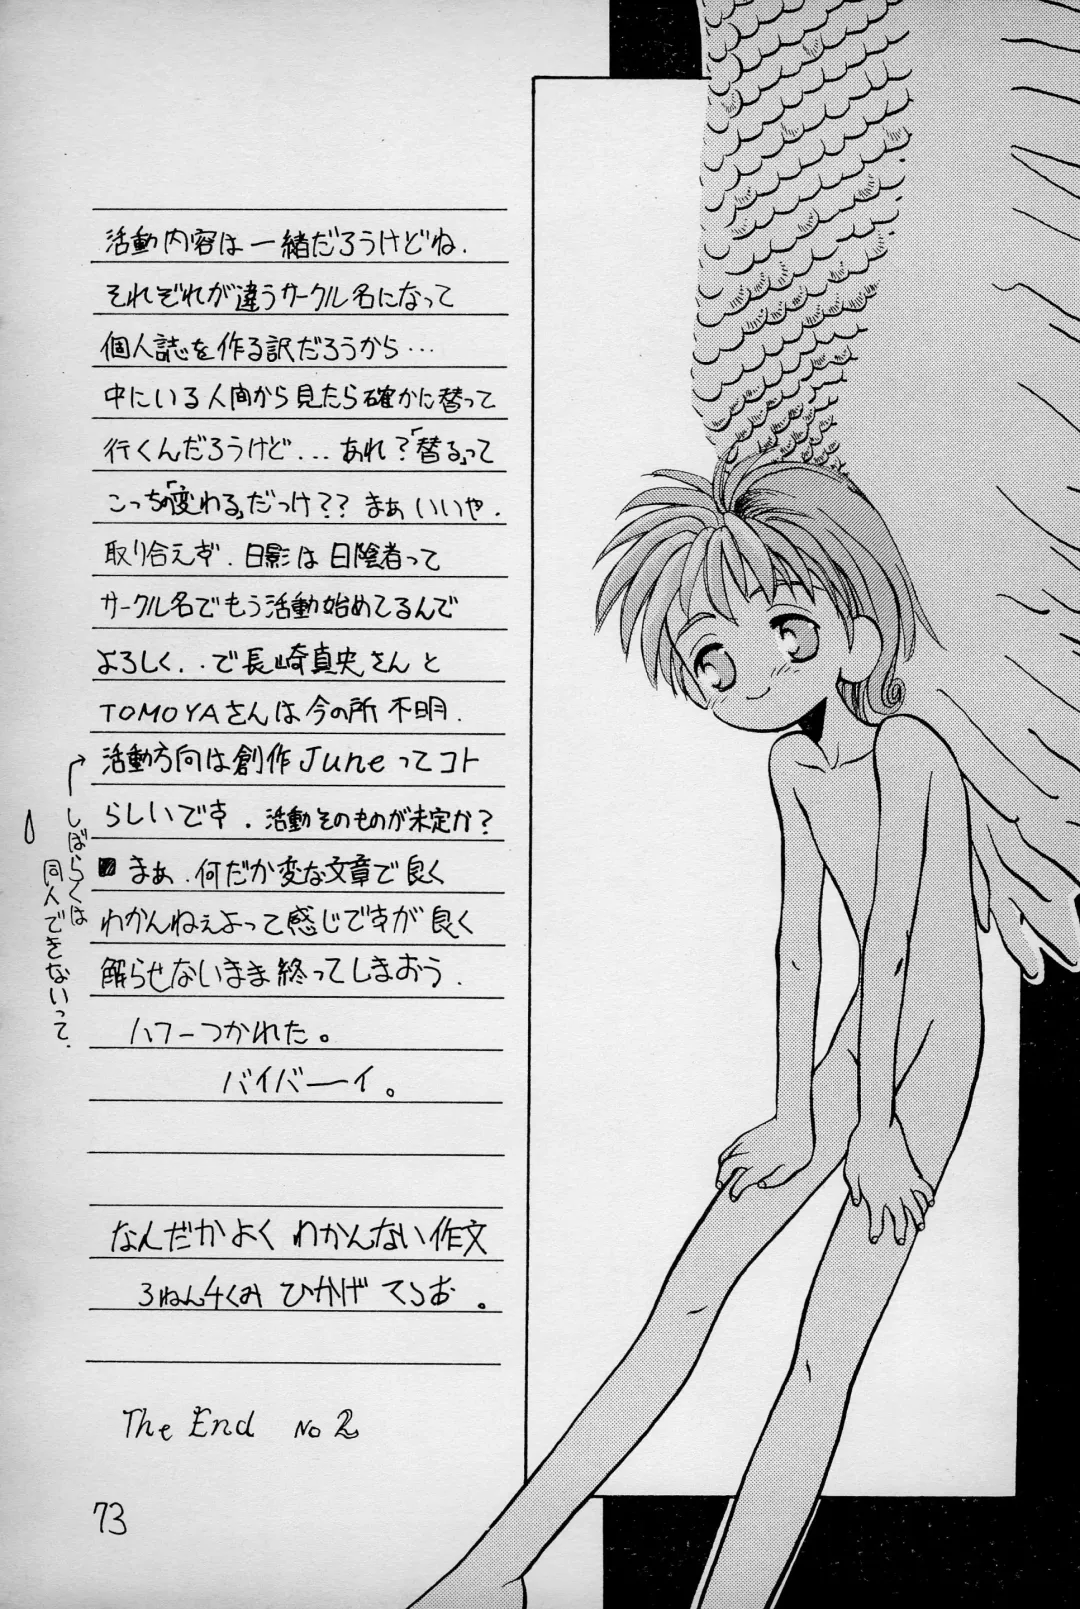 活動内容は一緒だろうけどね.
それぞれが違うサークル名になって
個人誌を作る訳だろうから…
中にいる人間から見たら確かに替って
行くんだろうけど... あれ?「替る」って
こっちの「変わる」だっけ?? まぁいいや.
取り合えず.日影は日陰者って
サークル名でもう活動始めてるんで
よろしく..で長崎真央さんと
TOMOYAさんは今の所不明.
活動方向は創作Juneってコト
らしいです.活動そのものが未定か?
まぁ.何だか変な文章で良く
わかんねぇよって感じですが良く
解らせないまま終ってしまおう.
ハフーつかれた。
バイバーイ。
しばらくは
同人できないって.
なんだかよく わかんない作文
3ねん4くみ ひかげ てらお。
The End No 2
73